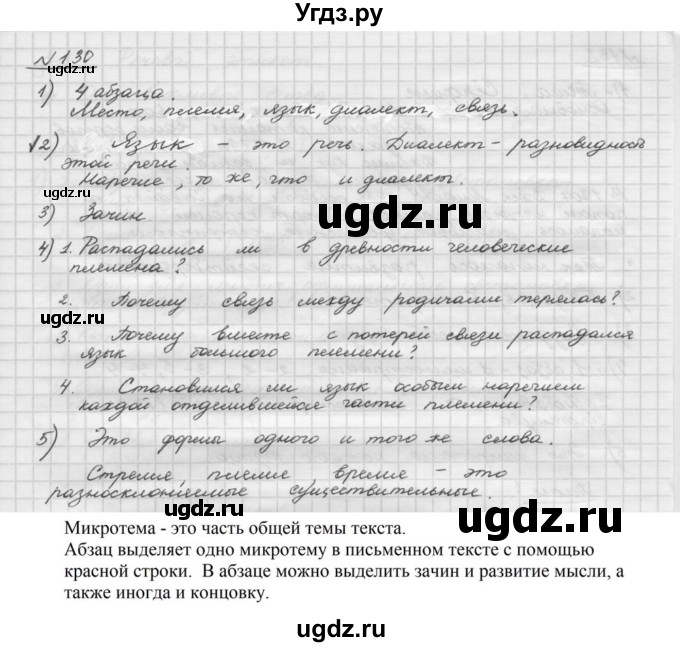 Угдз.ру
№130
1) 4 абзаца.
Место, племя, язык, диалект, связь.
2) Язык – это речь. Диалект – разновидность
этой речи.
Наречие, то же, что и диалект.
3) Зачин
4) 1. Распадались ли в древности человеческие
племена?
2. Почему связь между родичами терялась?
3. Почему вместе с потерей связи распадался
язык большого племени?
4. Становился ли язык особым наречием
каждой отделившейся части племени?
5) Это формы одного и того же слова.
Стремя, племя, время – это
разносклоняемые существительные.
Микротема - это часть общей темы текста.
Абзац выделяет одно микротему в письменном тексте с помощью
красной строки. В абзаце можно выделить зачин и развитие мысли, а
также иногда и концовку.
ugdz.ru
ugdz.ru
ugdz.ru
ugdz.ru
ugdz.ru
ugdz.ru
ugdz.ru
ugdz.ru